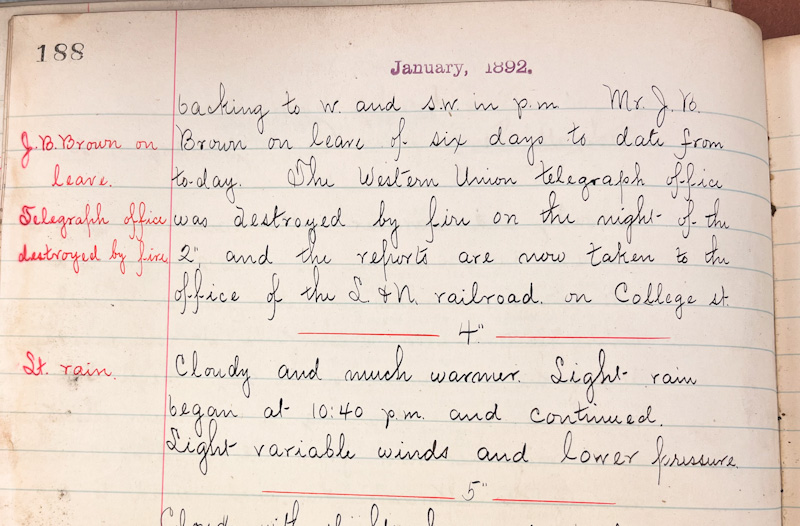 188
January, 1892.
backing to w. and s.w. in p.m. Mr. J. B.
J.B. Brown on
Brown on leave of six days to date from
leave.
to-day. The Western Union telegraph office
Telegraph office
was destroyed by fire on the night of the
destroyed by fire
2", and the reports are now taken to the
office of the L. & N. railroad. on College st.
4"
Lt. rain.
Cloudy and much warmer. Light rain
began at 10:40 p.m. and continued.
Light variable winds and lower pressure.
5"